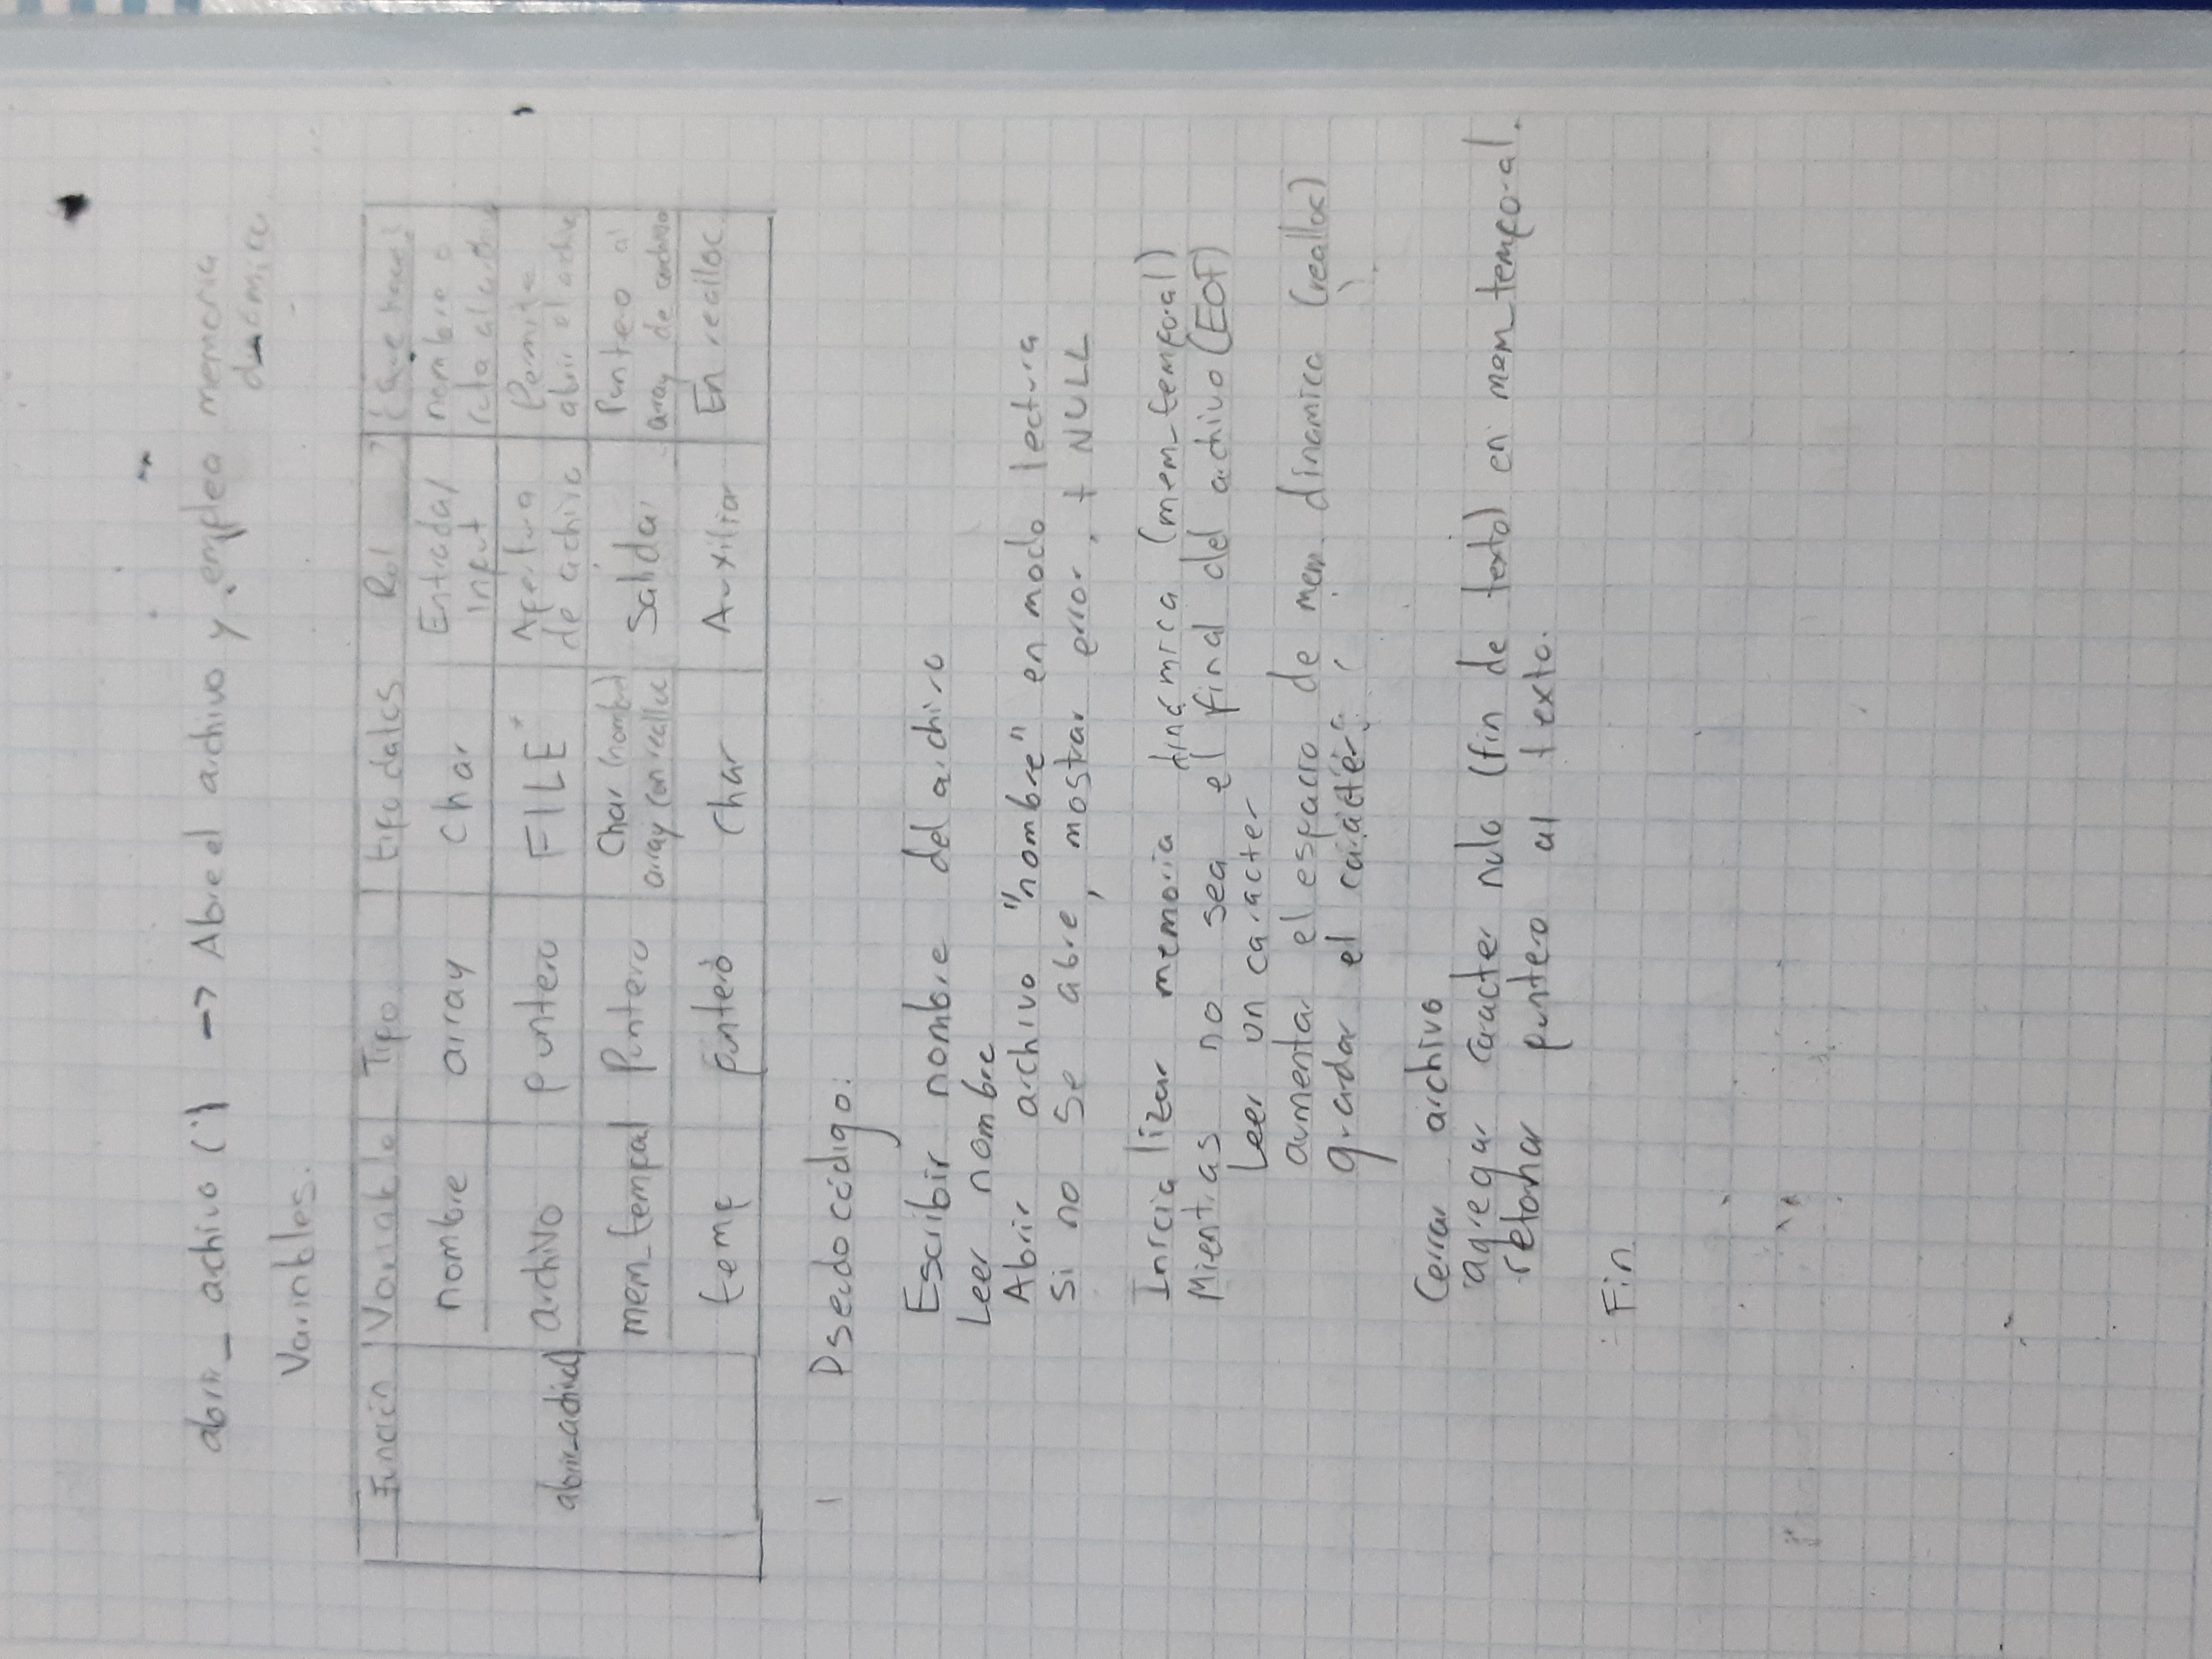 abrir_ archivo () -> Abre el archivo y emplea memoria
dinámica
Variables.
Función Variable Tipo tipo datos Rol ¿Que hace?
nombre array char Entrada/ Input nombre o ruta al archivo
abrir_archivo() archivo puntero FILE* Apertura de archivo Permite abrir el archivo
mem_temporal Puntero Char (nombre) array con realloc Salida Puntero al array de archivo
temp puntero char Auxiliar En realloc.
Pseudocódigo:
Escribir nombre del archivo
Leer nombre
Abrir archivo "nombre" en modo lectura
Si no se abre, mostrar error. + NULL
Inicializar memoria dinámica (mem_temporal)
Mientras no sea el final del archivo (EOF)
Leer un caracter
aumentar el espacio de mem. dinamica (realloc)
guardar el caracter
Cerrar archivo
agregar caracter nulo (fin de texto) en mem_temporal.
retornar puntero al texto.
Fin